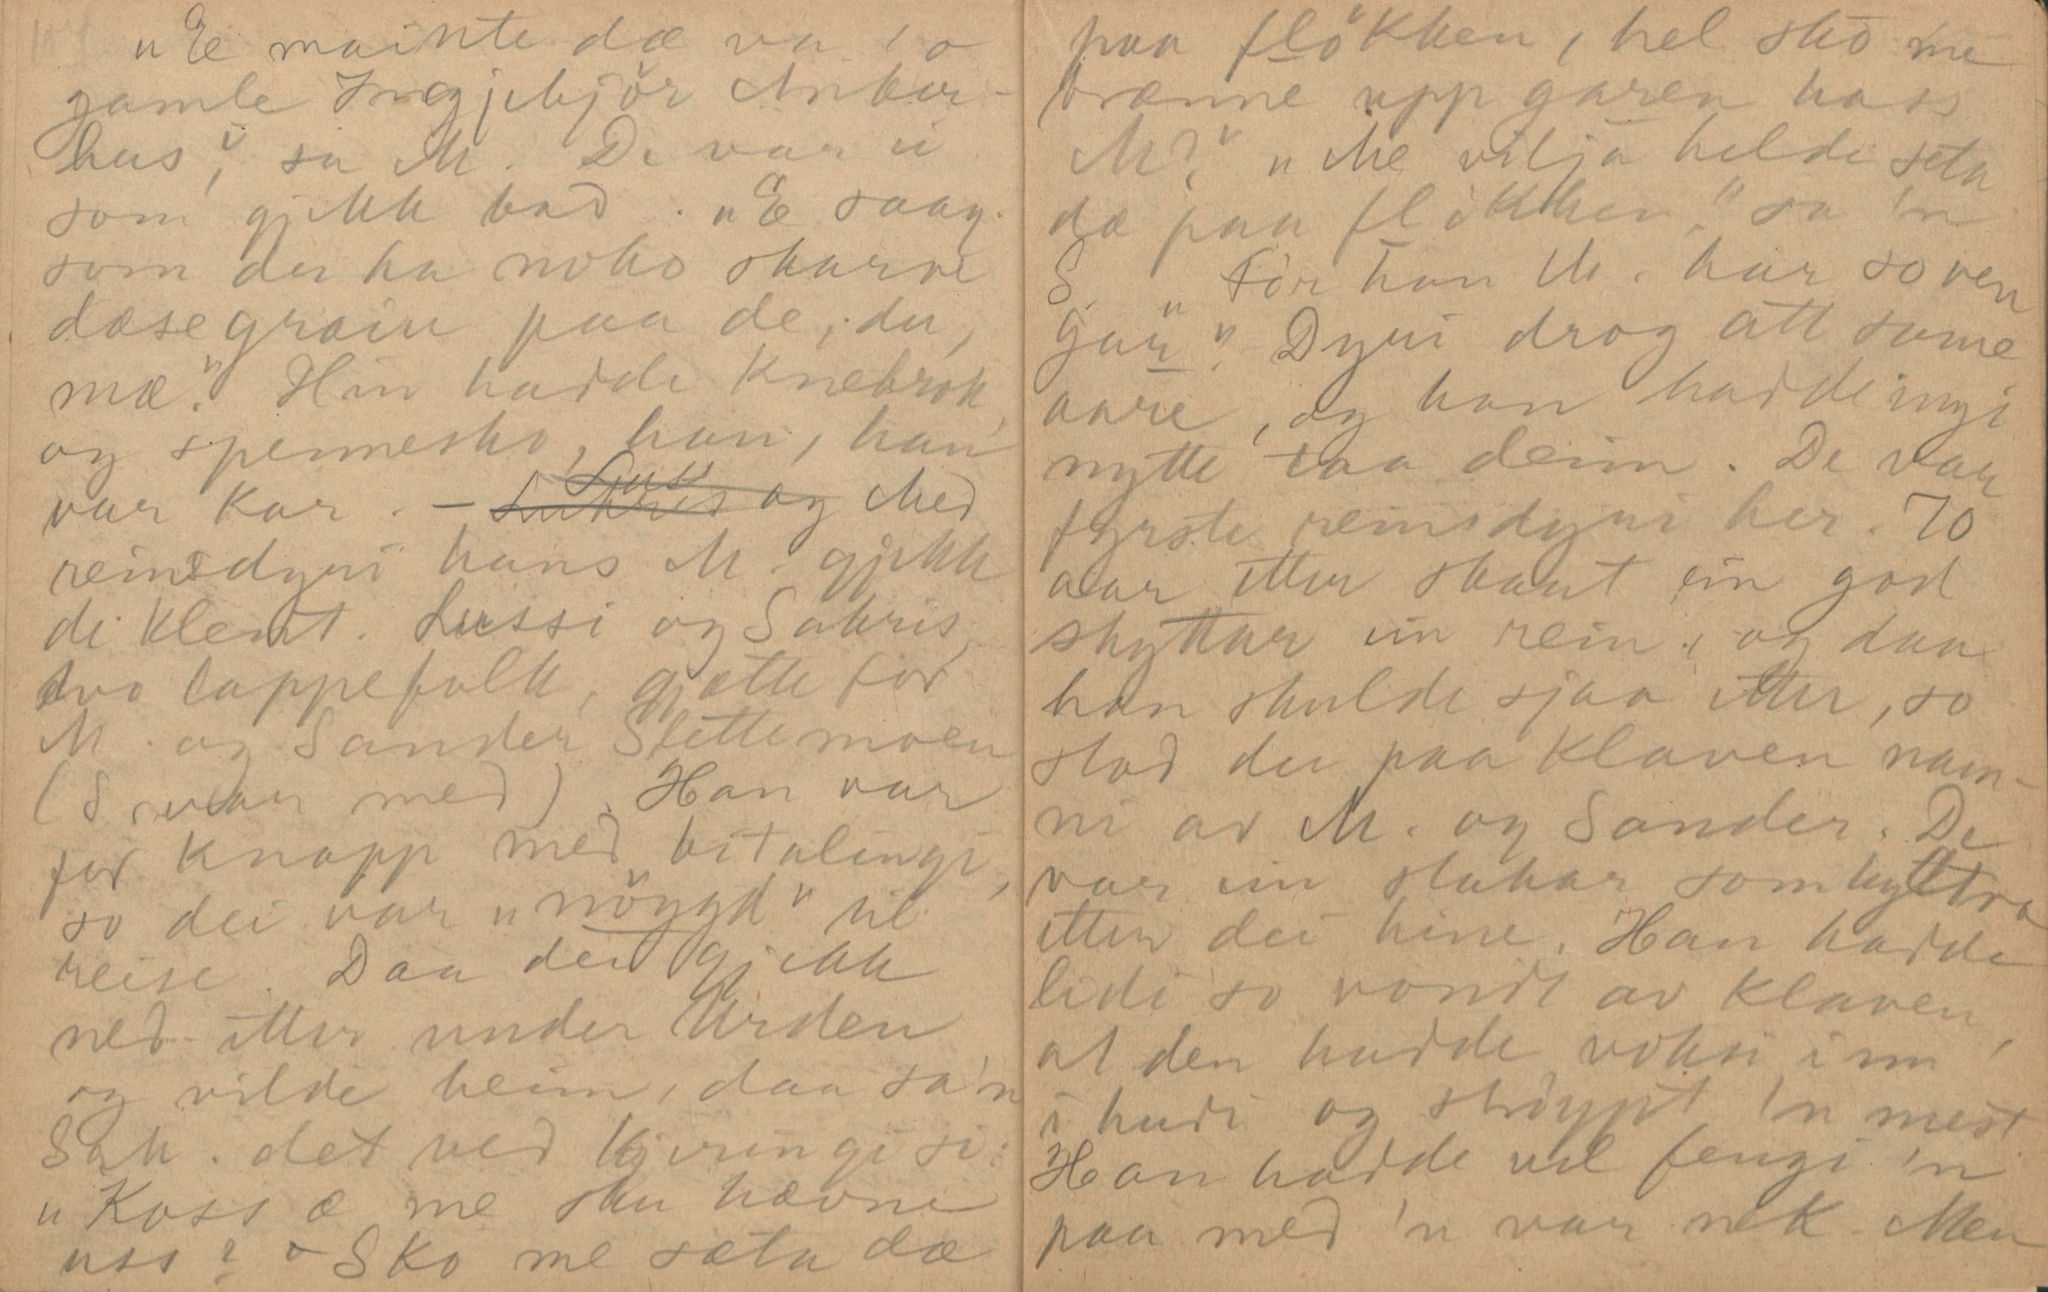 "E mainte dæ va 'o
gamle Ingjebjör Anbur-
hus", sa M. De var ei
som gjekk bad. "E saag
som du ha noko skarve
dæsegrain paa de, du,
mæ." Hin hadde Knebrok
og spennesko, han, han
var kar. – og Med
reinsdyri hans M. gjekk
de kleint. Lussi og Sakris,
tvo lappefolk, gjætte for
M. og Sander Slettemoen
(S. var med). Han var
for knapp med bitalingi,
so dei var "nöygd" til
reise. Daa dei gjekk
ned-etter under Urden
og vilde heim, daa sa'n
Sak. det ved kjeringi si:
"Koss æ me sku hævne
uss? Sko me sæta dæ
paa flökken, hel sko me
brænne upp garen hass
M?" "Me vilja helde seta
dæ paa flökken," sa 'n
S. "For han M. har so ven
gar". Dyri drog att same
aare, og han hadde ingi
nytte taa deim. De var
fyrste reinsdyri her. 70
aar etter skaut ein god
skyttar ein rein, og daa
han skulde sjaa etter, so
stod de paa klaven nam-
ni av M. og Sander. De
var ein stakar som hyltra
etter dei hine. Han hadde
lidi so vondt av klaven,
at den hadde voksi inn
i hudi og ströypt 'n mest
Han hadde vel fengi 'n
paa med 'n var nek. Men